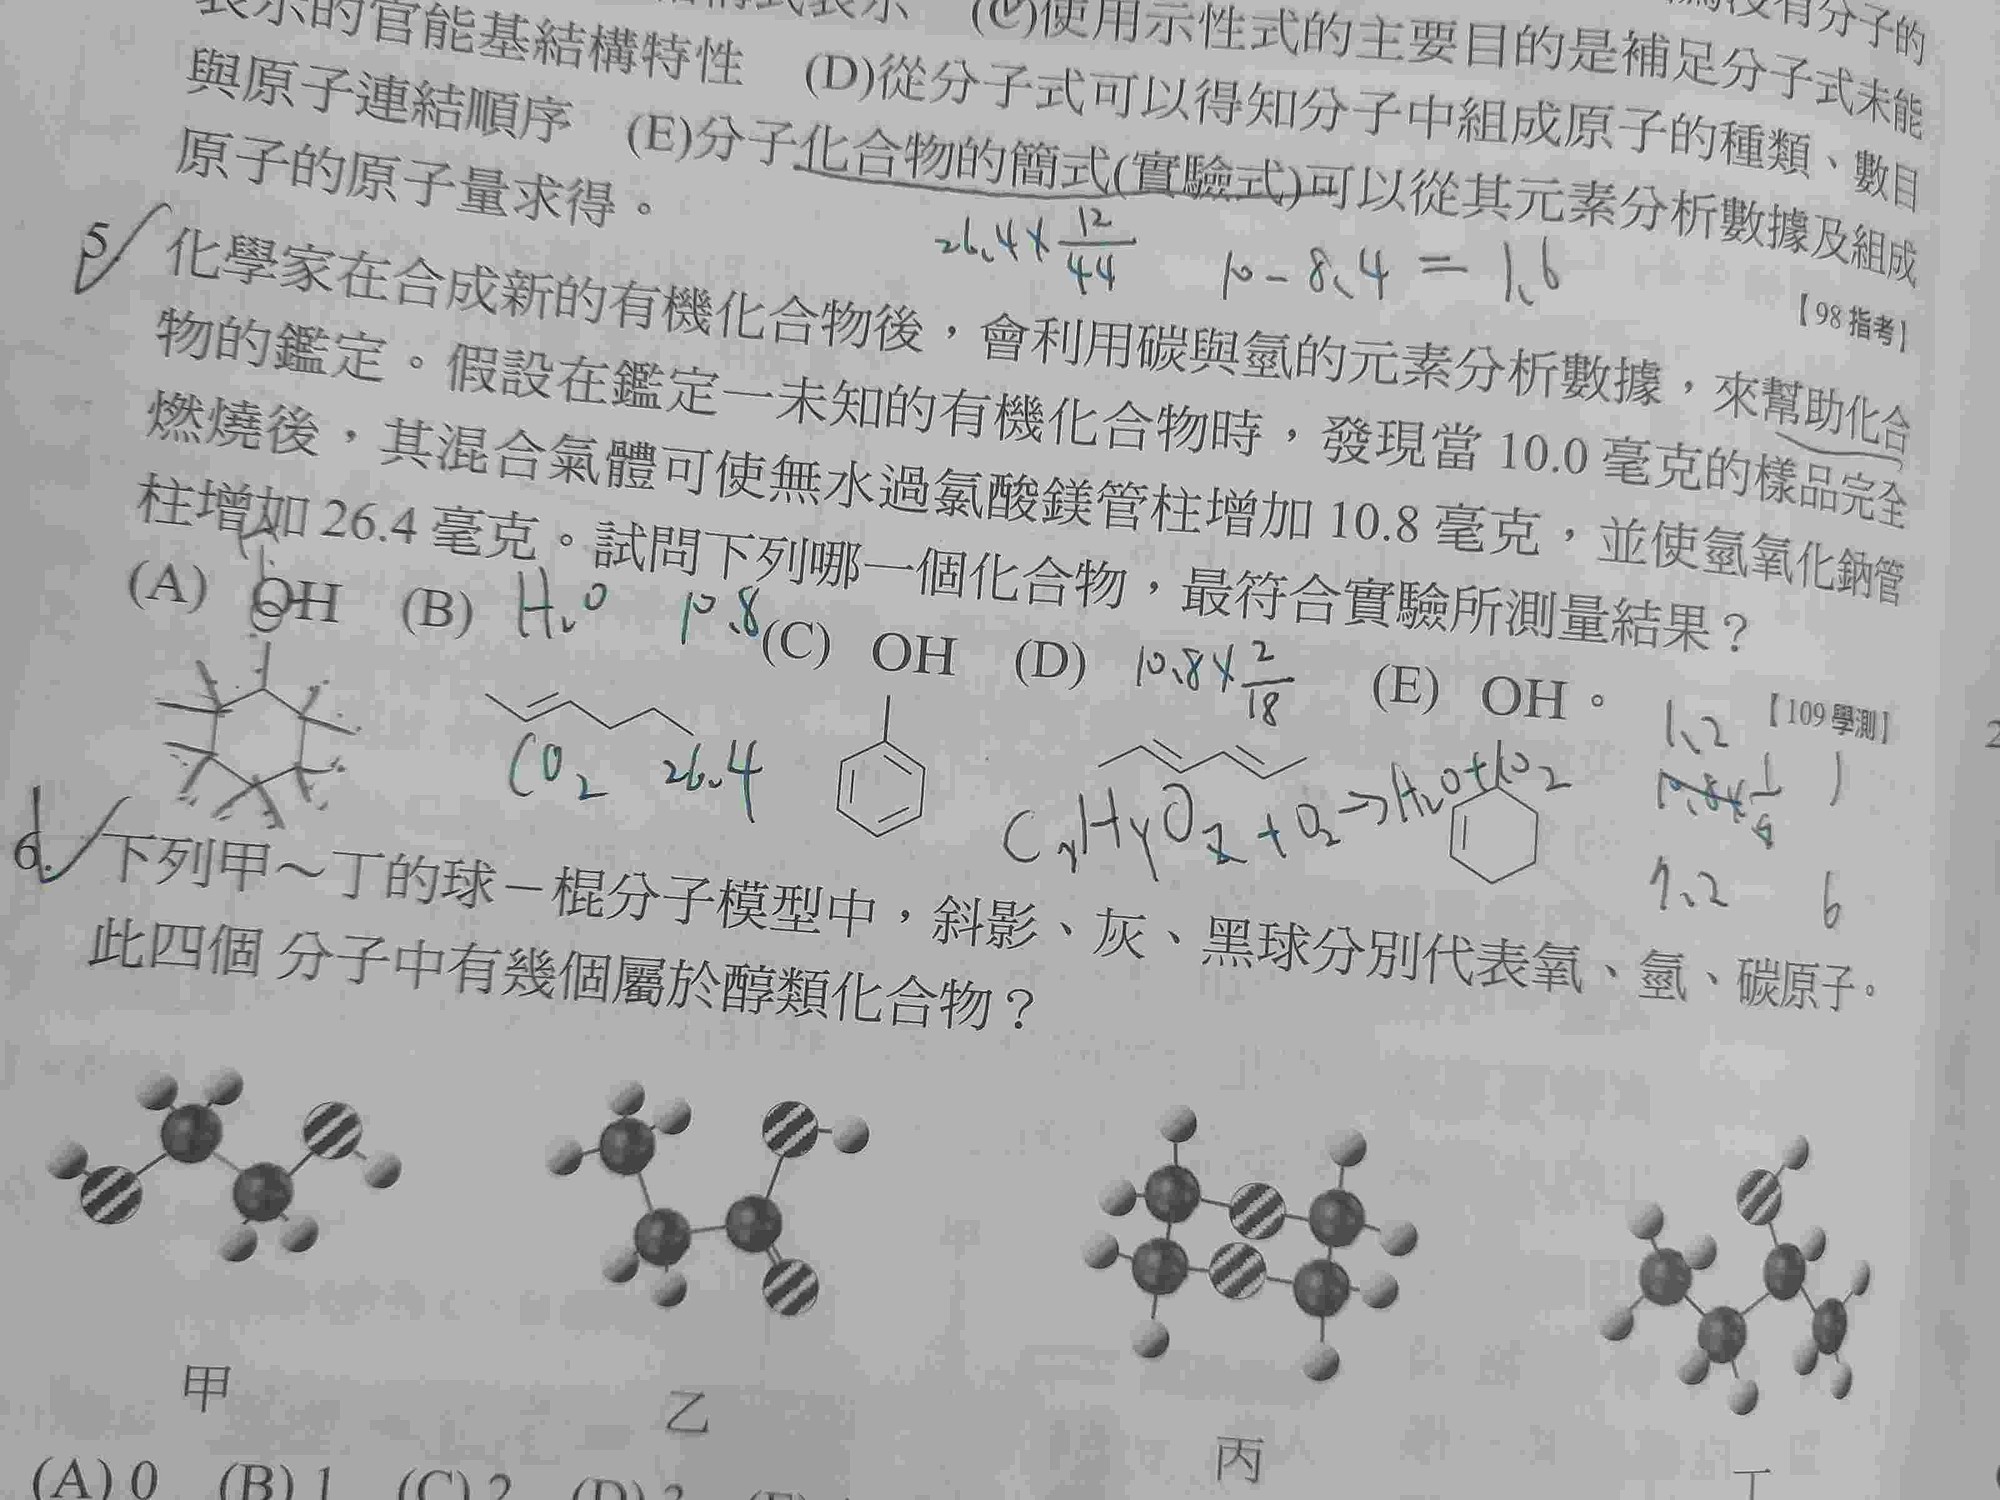 表示的官能基結構特性 (C)使用示性式的主要目的是補足分子式未能
與原子連結順序 (D)從分子式可以得知分子中組成原子的種類、數目
原子的原子量求得。 (E)分子化合物的簡式(實驗式)可以從其元素分析數據及組成
【98指考】
26.4×12/44 10-8.4=1.6
5. 化學家在合成新的有機化合物後，會利用碳與氫的元素分析數據，來幫助化合
物的鑑定。假設在鑑定一未知的有機化合物時，發現當 10.0 毫克的樣品完全
燃燒後，其混合氣體可使無水過氯酸鎂管柱增加 10.8 毫克，並使氫氧化鈉管
柱增加 26.4 毫克。試問下列哪一個化合物，最符合實驗所測量結果？
【109學測】
(A) OH (B) (C) OH (D) (E) OH。
H₂O 10.8
10.8×2/18
CO₂ 26.4
CxHyOz+O₂→H₂O+CO₂
1.2
1
7.2 6
6. 下列甲～丁的球－棍分子模型中，斜影、灰、黑球分別代表氧、氫、碳原子。
此四個 分子中有幾個屬於醇類化合物？
甲 乙 丙 丁
(A) 0 (B) 1 (C) 2 (D) 3